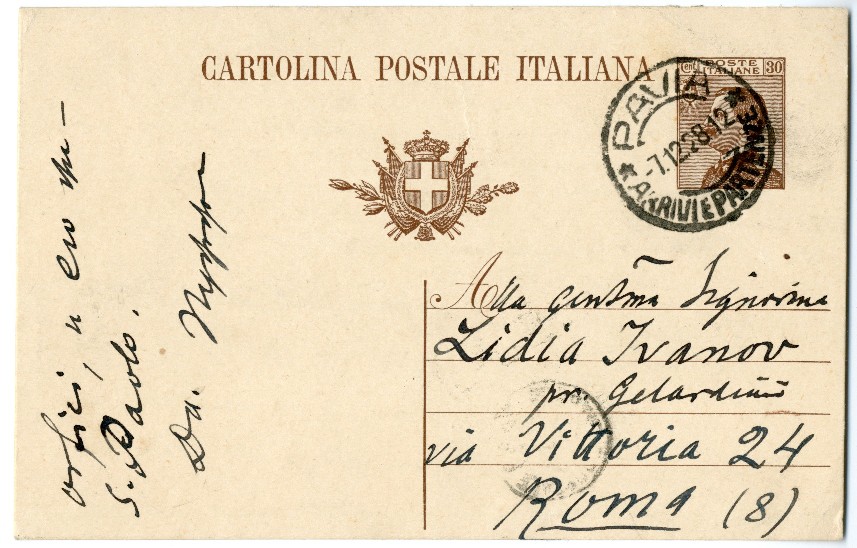 CARTOLINA POSTALE ITALIANA
POSTE
ITALIANE
30
PAVIA
-7.12.28.12
* ARRIVI E PARTENZE *
Alla gentma Signorina
Lidia Ivanov
pr. Gelardini
via Vittoria 24
Roma (8)
S. Paolo.